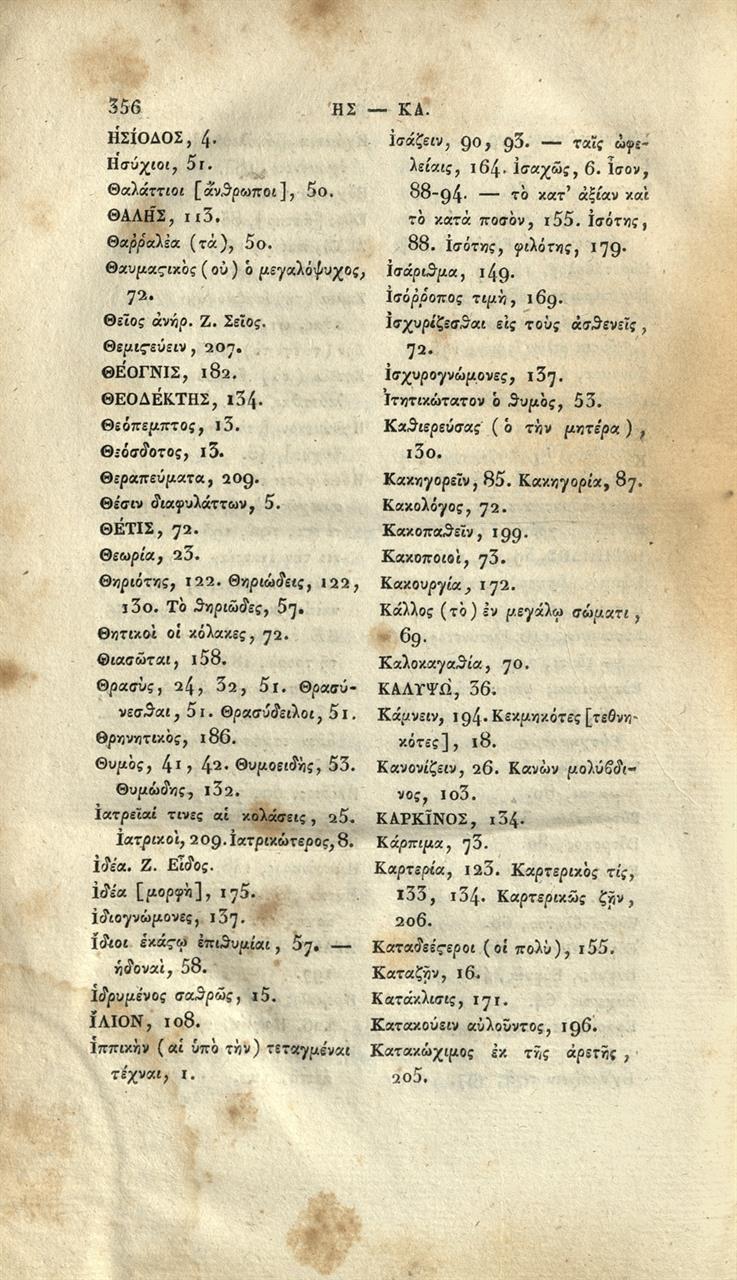 356
ΗΣ — ΚΑ.
ἩΣΊΟΔΟΣ, 4.
Ἡσύχιοι, 51.
Θαλάττιοι [ἄνθρωποι], 50.
ΘΑΛΗ͂Σ, 113.
Θαῤῥαλέα (τά), 50.
Θαυμαςικὸς (οὐ) ὁ μεγαλόψυχος,
72.
Θεῖος ἀνήρ. Ζ. Σεῖος.
Θεμιςεύειν, 207.
ΘΈΟΓΝΙΣ, 182.
ΘΕΟΔΈΚΤΗΣ, 134.
Θεόπεμπτος, 13.
Θεόσδοτος, 13.
Θεραπεύματα, 209.
Θέσιν διαφυλάττων, 5.
ΘΈΤΙΣ, 72.
Θεωρία, 23.
Θηριότης, 122. Θηριώδεις, 122,
130. Τὸ θηριῶδες, 57.
Θητικοὶ οἱ κόλακες, 72.
Θιασῶται, 158.
Θρασὺς, 24, 32, 51. Θρασύ-
νεσθαι, 51. Θρασύδειλοι, 51.
Θρηνητικὸς, 186.
Θυμὸς, 41, 42. Θυμοειδὴς, 53.
Θυμώδης, 132.
Ἰατρεῖαί τινες αἱ κολάσεις, 25.
Ἰατρικοὶ, 209. Ἰατρικώτερος, 8.
Ἰδέα. Ζ. Εἶδος.
Ἰδέα [μορφὴ], 175.
Ἰδιογνώμονες, 137.
Ἴδιοι ἑκάςῳ ἐπιθυμίαι, 57. —
ἡδοναὶ, 58.
Ἱδρυμένος σαθρῶς, 15.
ἼΛΙΟΝ, 108.
Ἱππικὴν (αἱ ὑπὸ τὴν) τεταγμέναι
τέχναι, 1.
Ἰσάζειν, 90, 93. — ταῖς ὠφε-
λείαις, 164. Ἰσαχῶς, 6. Ἶσον,
88-94. — τὸ κατ' ἀξίαν καὶ
τὸ κατὰ ποσὸν, 155. Ἰσότης,
88. Ἰσότης, φιλότης, 179.
Ἰσάριθμα, 149.
Ἰσόῤῥοπος τιμὴ, 169.
Ἰσχυρίζεσθαι εἰς τοὺς ἀσθενεῖς,
72.
Ἰσχυρογνώμονες, 137.
Ἰτητικώτατον ὁ θυμὸς, 53.
Καθιερεύσας (ὁ τὴν μητέρα),
130.
Κακηγορεῖν, 85. Κακηγορία, 87.
Κακολόγος, 72.
Κακοπαθεῖν, 199.
Κακοποιοὶ, 73.
Κακουργία, 172.
Κάλλος (τὸ) ἐν μεγάλῳ σώματι,
69.
Καλοκαγαθία, 70.
ΚΑΛΥΨῺ, 36.
Κάμνειν, 194. Κεκμηκότες [τεθνη-
κότες], 18.
Κανονίζειν, 26. Κανὼν μολύβδι-
νος, 103.
ΚΑΡΚΙ͂ΝΟΣ, 134.
Κάρπιμα, 73.
Καρτερία, 123. Καρτερικὸς τίς,
133, 134. Καρτερικῶς ζῆν,
206.
Καταδεέςεροι (οἱ πολὺ), 155.
Καταζῆν, 16.
Κατάκλισις, 171.
Κατακούειν αὐλοῦντος, 196.
Κατακώχιμος ἐκ τῆς ἀρετῆς,
205.